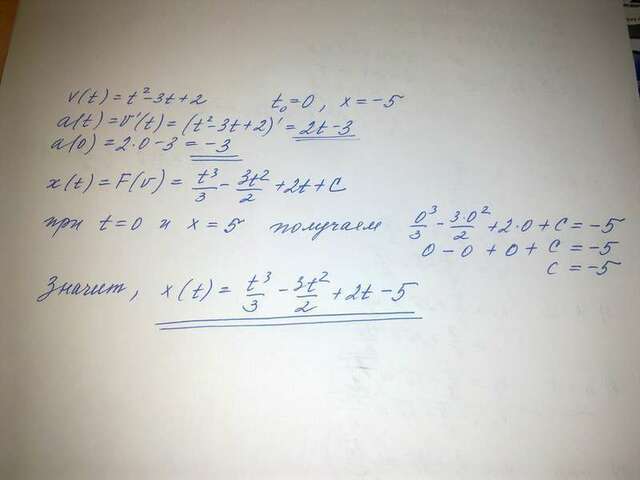 v(t) = t²-3t+2 t₀=0, x=-5
a(t) = v'(t) = (t²-3t+2)' = 2t-3
a(0) = 2·0-3 = -3
x(t) = F(v) = t³/3 - 3t²/2 + 2t + C
при t=0 и x=5 получаем 0³/3 - 3·0²/2 + 2·0 + C = -5
0 - 0 + 0 + C = -5
C = -5
Значит, x(t) = t³/3 - 3t²/2 + 2t - 5